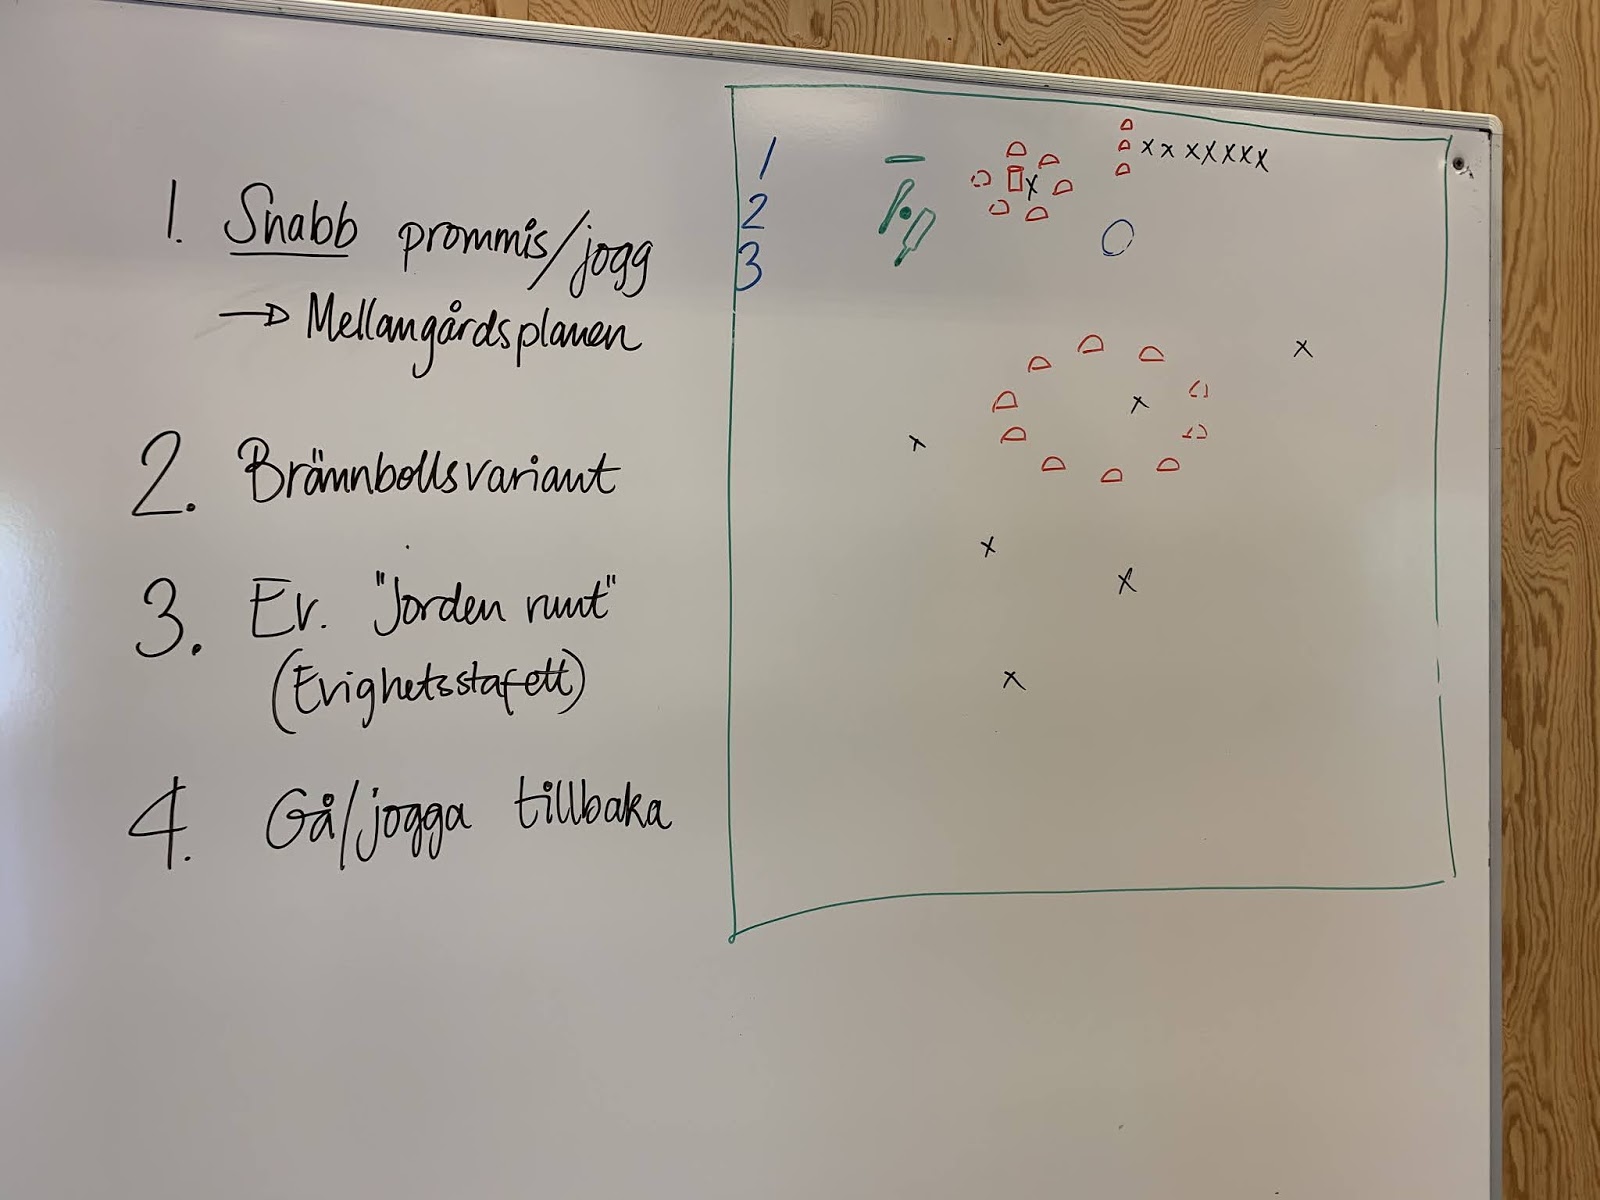 1. Snabb prommis/jogg
→ Mellangårdsplanen
2. Brännbollsvariant
3. Ev. "Jorden runt"
(Evighetsstafett)
4. Gå/jogga tillbaka
1
2
3
x x x x x x x x
x
x
x
x
x
x
x